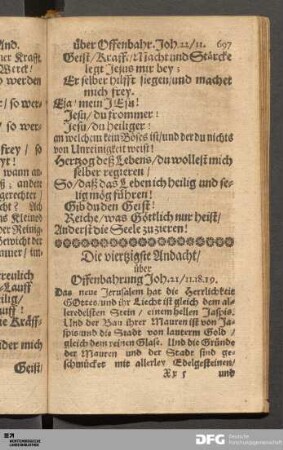 And.
ner Krafft
Werck/
so werden
r/ so wer-
/ so wer-
frey/ so
yt!
wann an-
ß; ander
gerechter/
cht? Ach
ns Kleinod
er Reinig-
Gewicht der
nuer/ im-
rreulich
-Lauff
ilig/
uff!
ne Kräff-
ider mich
Geist/
über Offenbahr. Joh. 22/11. 697
Geist/ Krafft/ Macht und Stärcke
legt Jesus mir bey;
Er selber hilfft siegen/ und machet
mich frey.
Eja! mein JEsu!
Jesu/ du frommer!
Jesu/ du heiliger!
an welchem kein Böses ist/ und der du nichts
von Unreinigkeit weist!
Hertzog deß Lebens/ du wollest mich
selber regieren/
So/ daß das Leben ich heilig und se-
lig mög führen!
Gib du den Geist!
Reiche/ was Göttlich nur heist/
Anderst die Seele zu zieren!
Die viertzigste Andacht/
über
Offenbahrung Joh. 21/11.18.19.
Das neue Jerusalem hat die Herrlichkeit
GOttes/ und ihr Liecht ist gleich dem al-
leredelsten Stein/ einem hellen Jaspis.
Und der Bau ihrer Mauren ist von Ja-
spis und die Stadt von lauterm Gold/
gleich dem reinen Glase. Und die Gründe
der Mauren und der Stadt sind ge-
schmücket mit allerley Edelgesteinen/
Xx 5 und
DFG Deutsche
Forschungsgemeinschaft